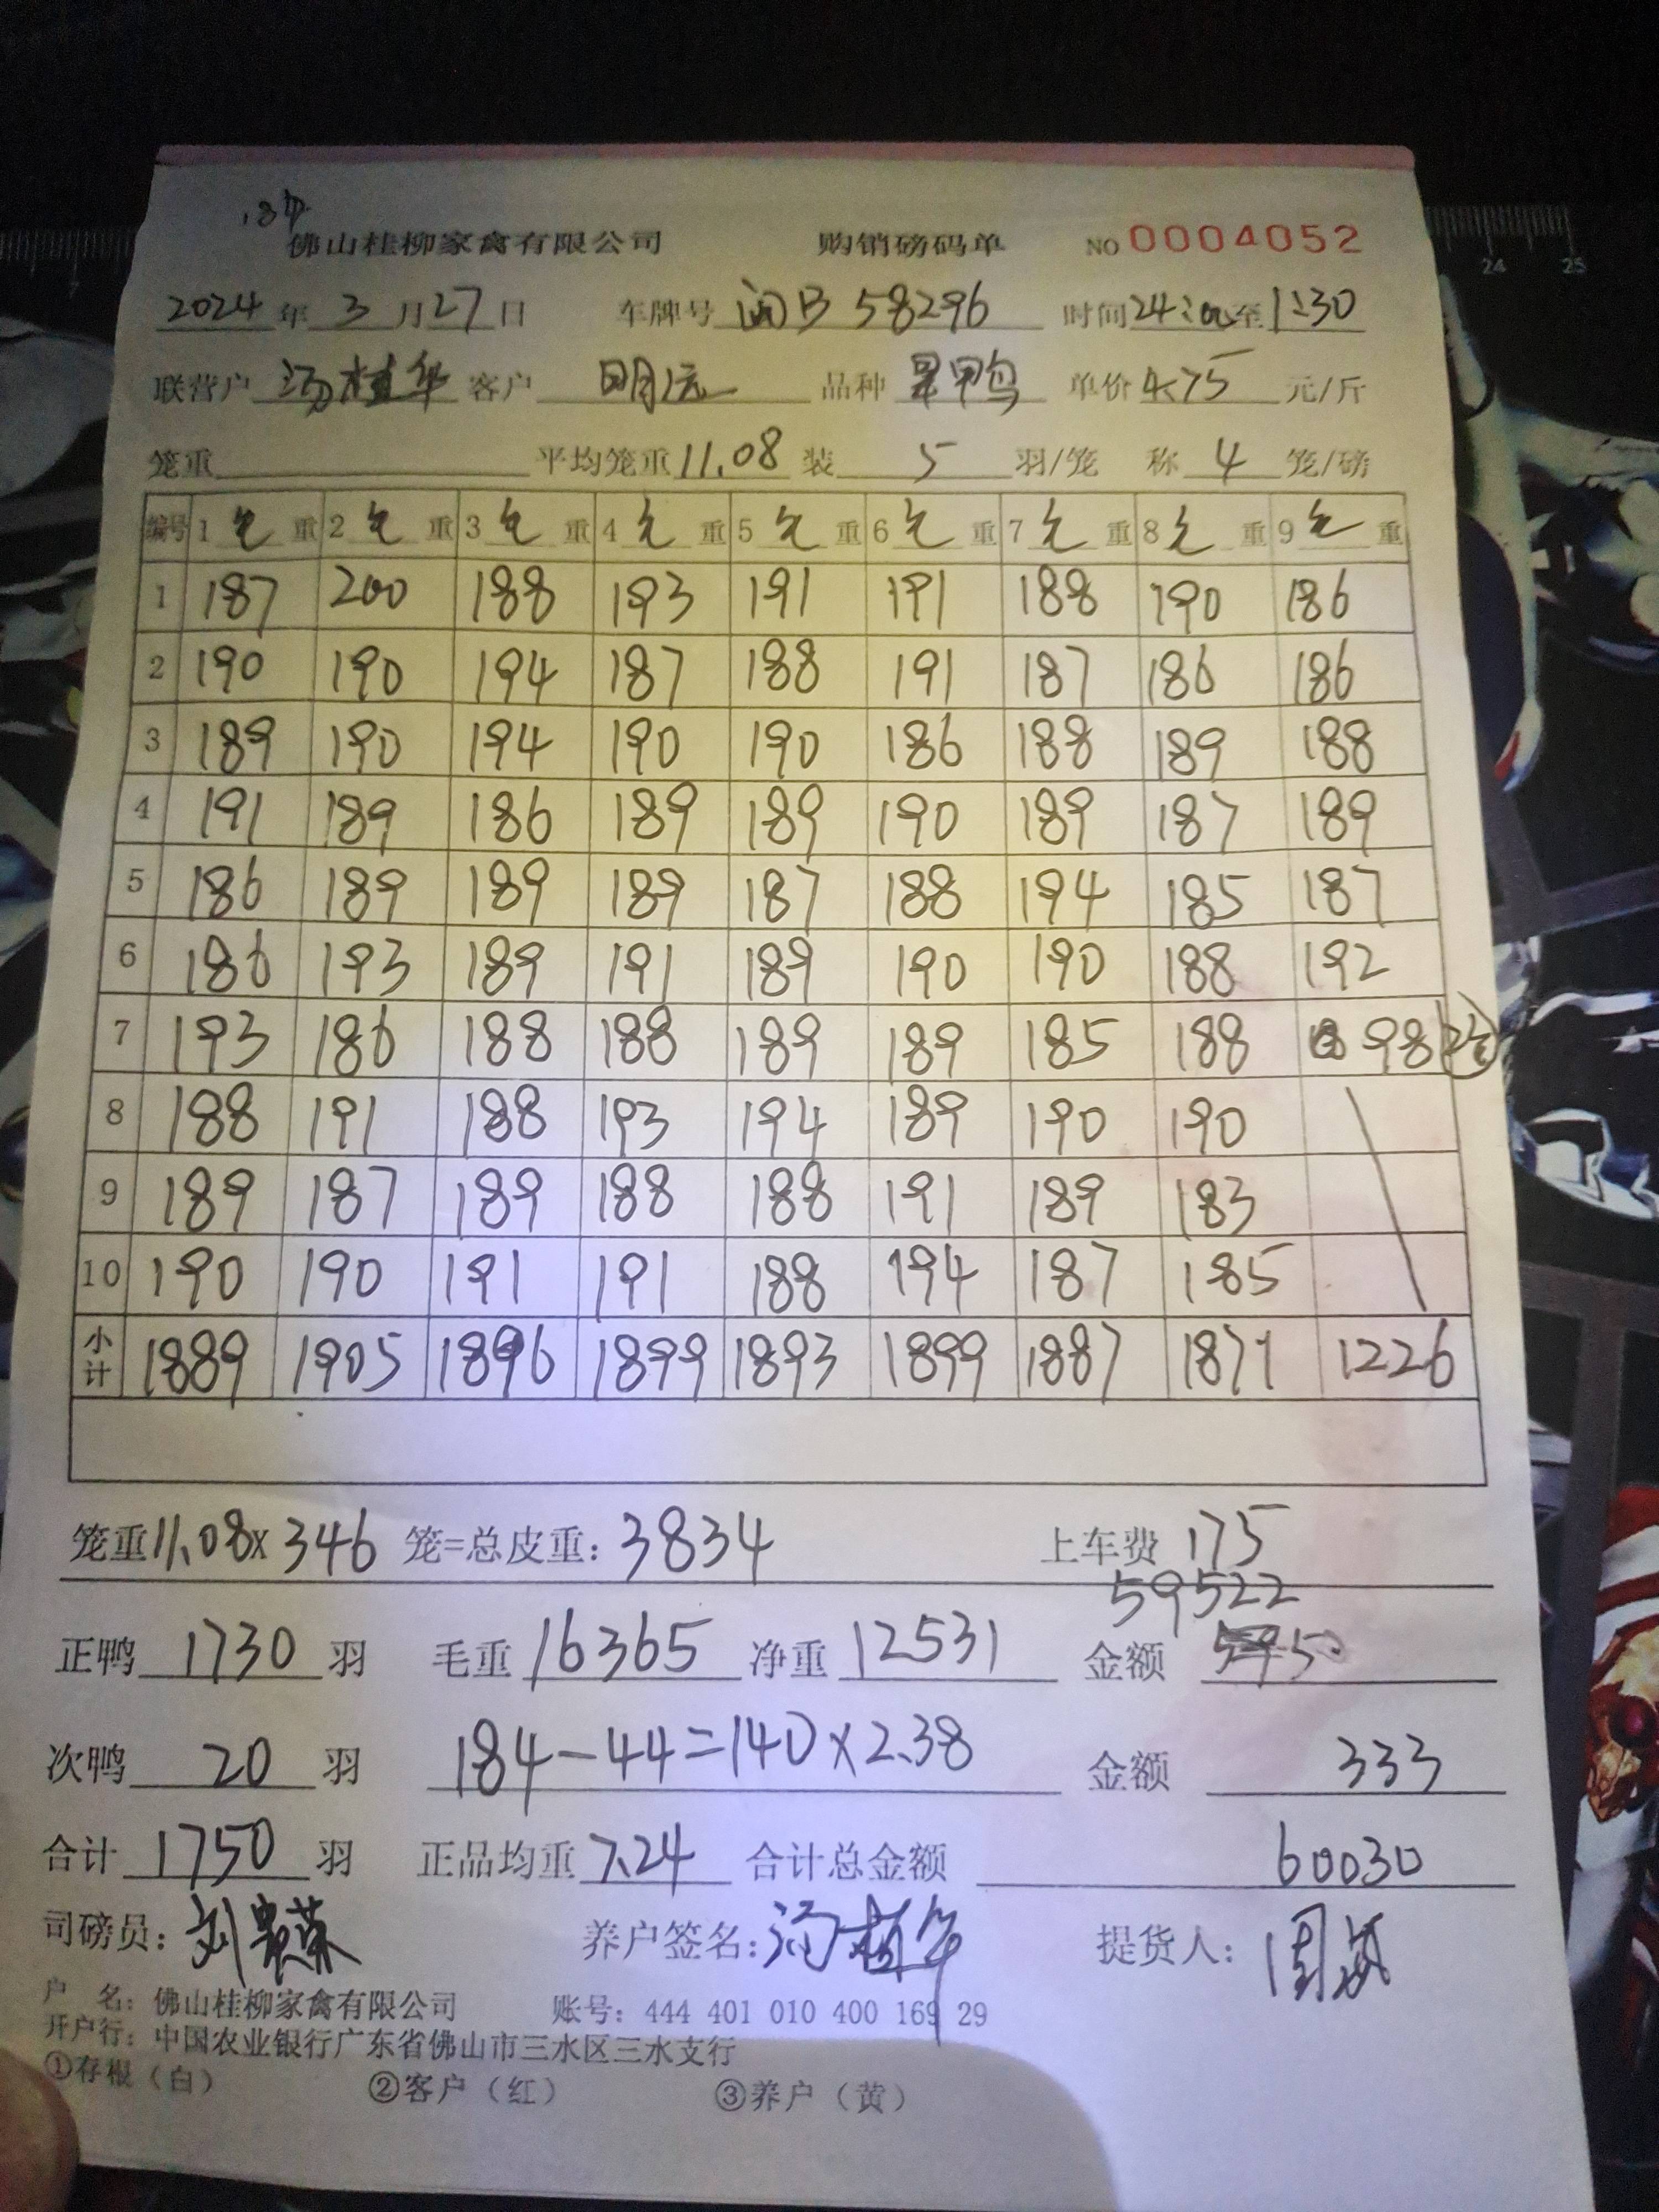 184
佛山桂柳家禽有限公司 购销磅码单 NO 0004052
2024年3月27日 车牌号 闽B 58296 时间 24:00至1:30
联营户 汤桂华 客户 明远 品种 单价 4.75 元/斤
笼重 平均笼重 11.08 装 5 羽/笼 称 4 笼/磅
编号 1 毛重 2 毛重 3 毛重 4 毛重 5 毛重 6 毛重 7 毛重 8 毛重 9 毛重
1 187 200 188 193 191 191 188 190 186
2 190 190 194 187 188 191 187 186 186
3 189 190 194 190 190 186 188 189 188
4 191 189 186 189 189 190 189 187 189
5 186 189 189 189 187 188 194 185 187
6 186 193 189 191 189 190 190 188 192
7 193 186 188 188 189 189 185 188 98
8 188 191 188 193 194 189 190 190
9 189 187 189 188 188 191 189 183
10 190 190 191 191 188 194 187 185
小计 1889 1905 1896 1899 1893 1899 1887 1871 1226
笼重 11.08 × 346 笼=总皮重: 3834 上车费 175
59522
正鸭 1730 羽 毛重 16365 净重 12531 金额
次鸭 20 羽 184-44=140×2.38 金额 333
合计 1750 羽 正品均重 7.24 合计总金额 60030
司磅员: 刘 荣 养户签名: 汤桂华 提货人: 周
户 名: 佛山桂柳家禽有限公司 账号: 444 401 010 400 169 29
开户行: 中国农业银行广东省佛山市三水区三水支行
①存根（白） ②客户（红） ③养户（黄）